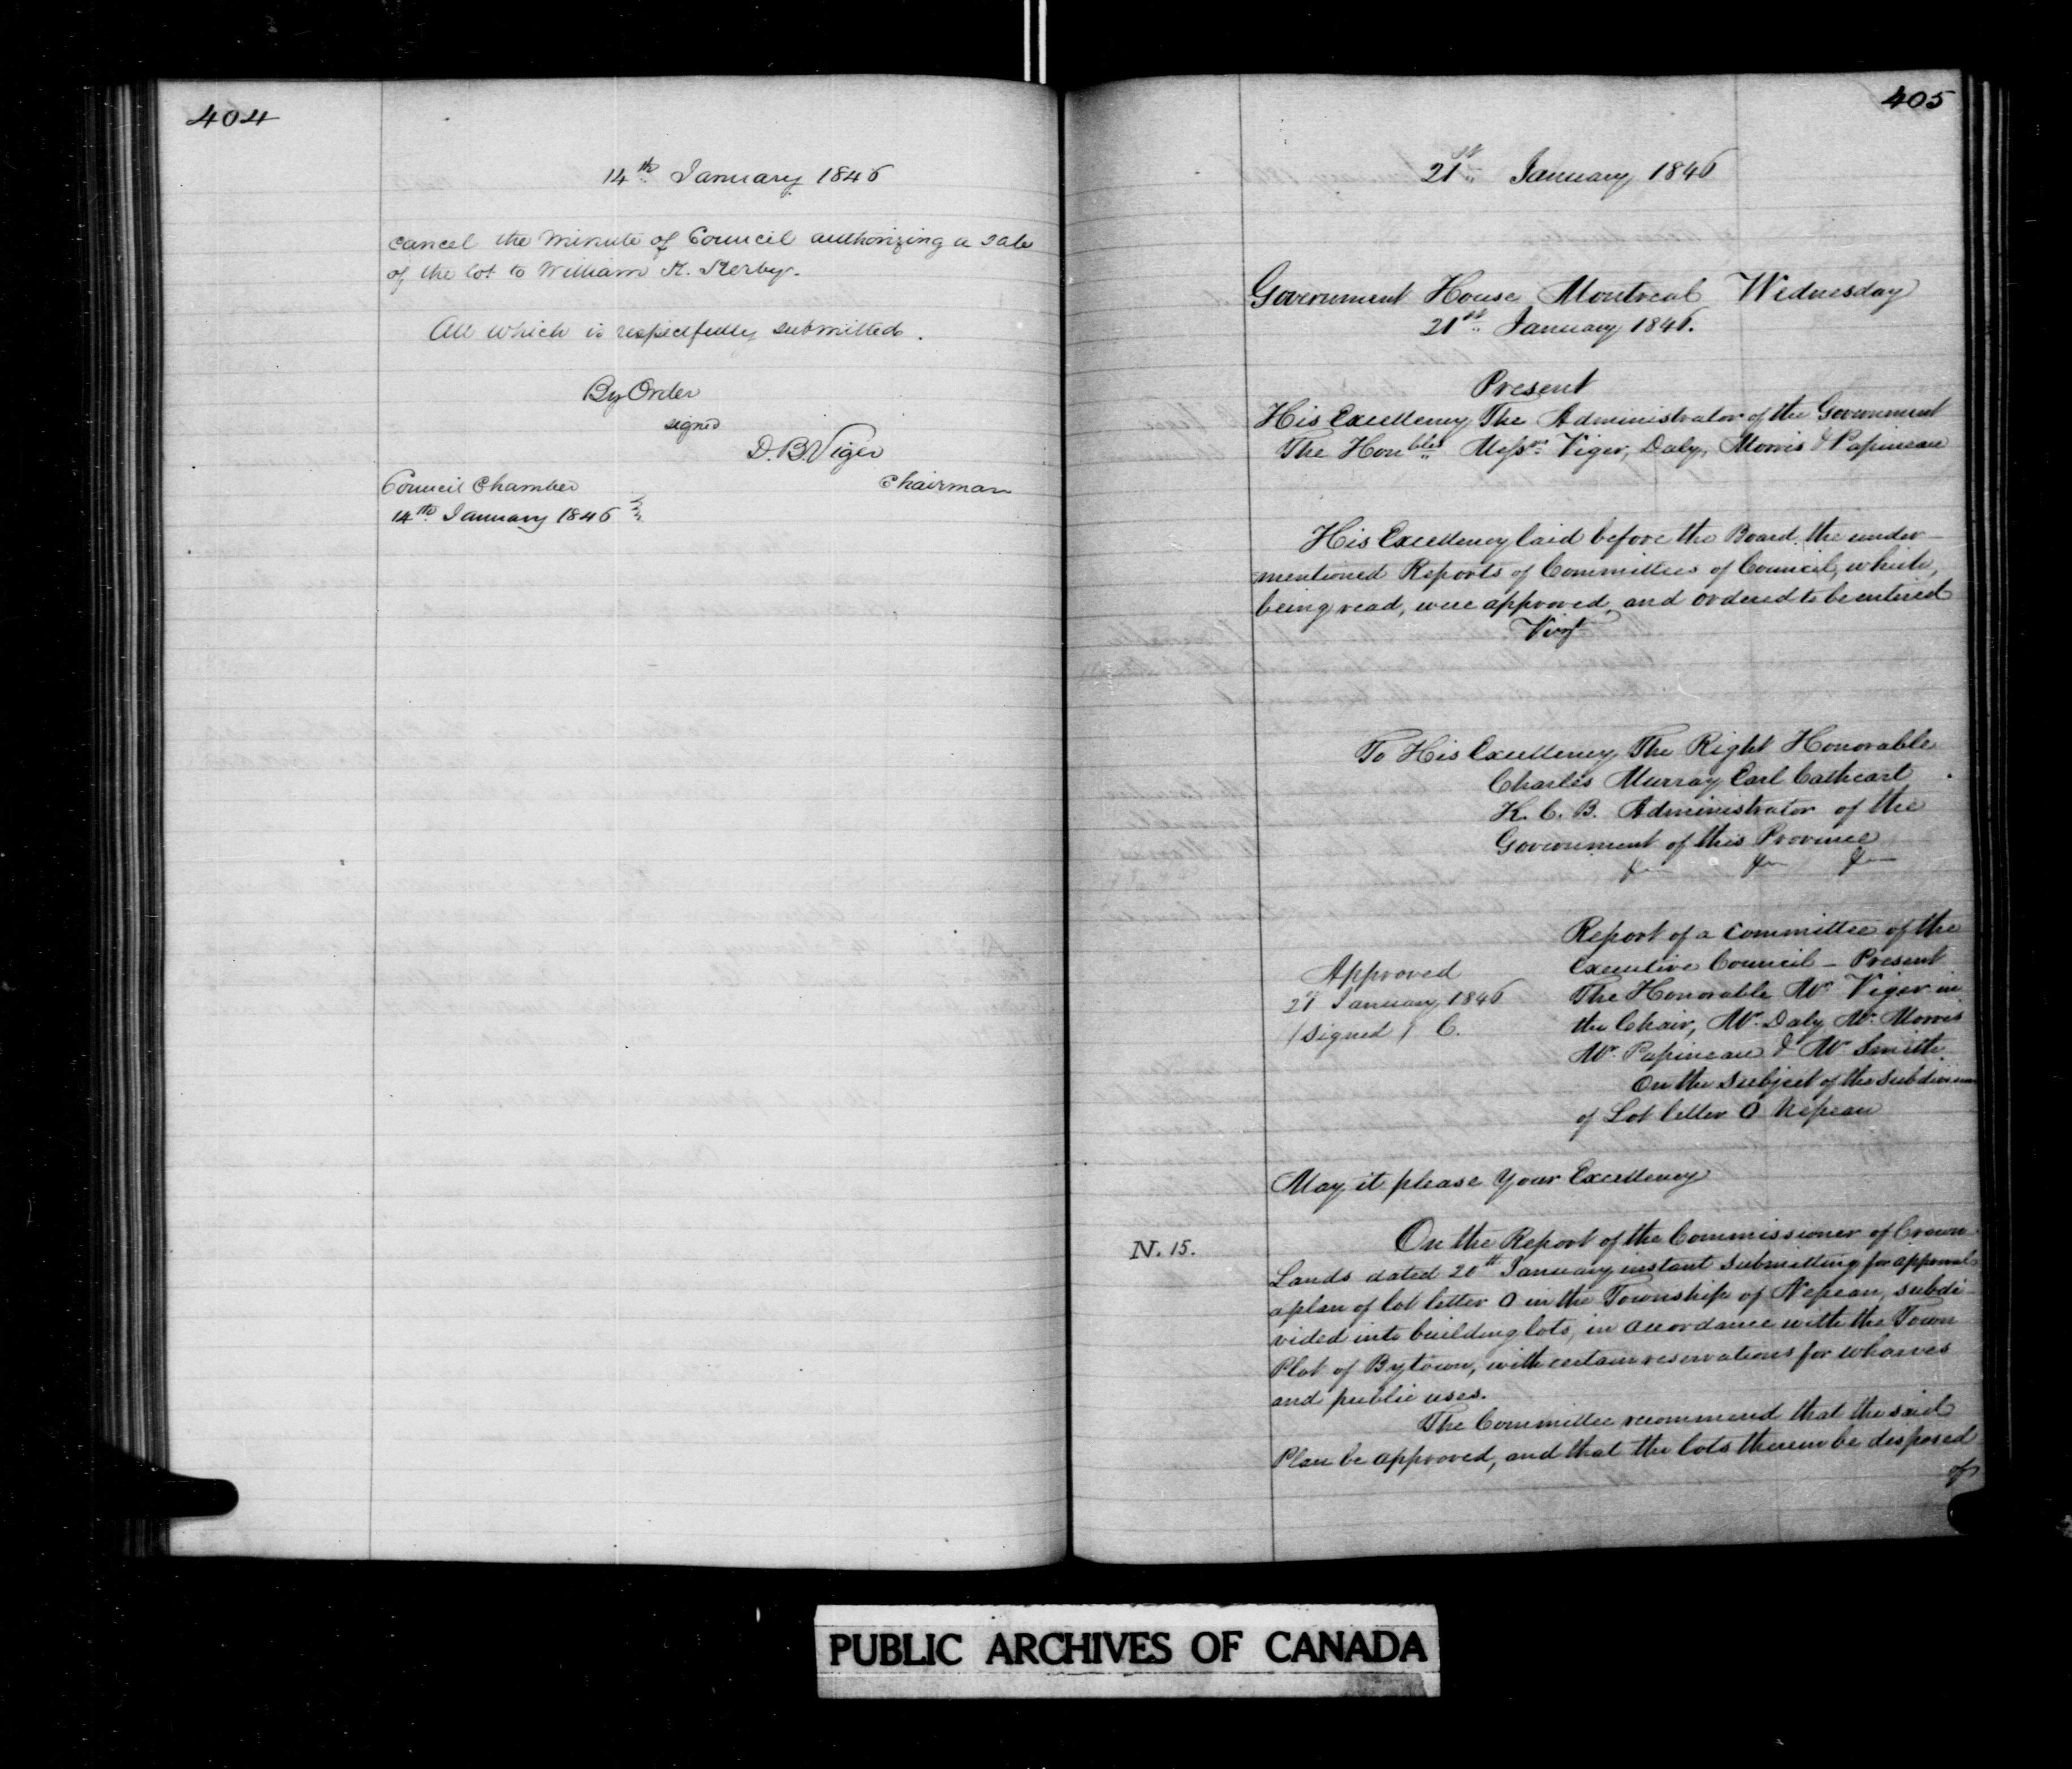 404
14th January 1846
cancel the minute of Council authorizing a sale
of the lot to William K. Kerby.
All which is respectfully submitted.
By Order
signed
D. B. Viger
Chairman
Council Chamber
14th January 1846
405
21st January 1846
Government House Montreal Wednesday
21st January 1846.
Present
His Excellency The Administrator of the Government
The Honbles Messrs Viger, Daly, Morris & Papineau
His Excellency laid before the Board the under-
mentioned Reports of Committees of Council, which,
being read, were approved, and ordered to be entered
Vizt
To His Excellency The Right Honorable
Charles Murray Earl Cathcart
K. C. B. Administrator of the
Government of this Province
&c &c &c
Approved
21 January 1846
(signed) C.
Report of a Committee of the
Executive Council - Present
The Honorable Mr Viger in
the Chair, Mr. Daly Mr. Morris
Mr. Papineau & Mr Smith
On the subject of the subdivision
of Lot letter O Nepean
May it please Your Excellency
N. 15.
On the Report of the Commissioner of Crown
Lands dated 20th January instant submitting for approval
a plan of lot letter O in the Township of Nepean, subdi
vided into building lots, in accordance with the Town
Plot of Bytown, with certain reservations for wharves
and public uses.
The Committee recommend that the said
Plan be approved, and that the lots therein be disposed
of
PUBLIC ARCHIVES OF CANADA